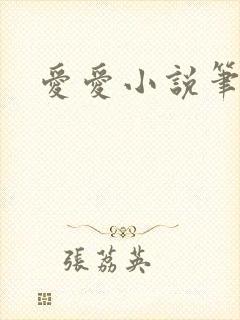 愛愛小説筆
張荔英